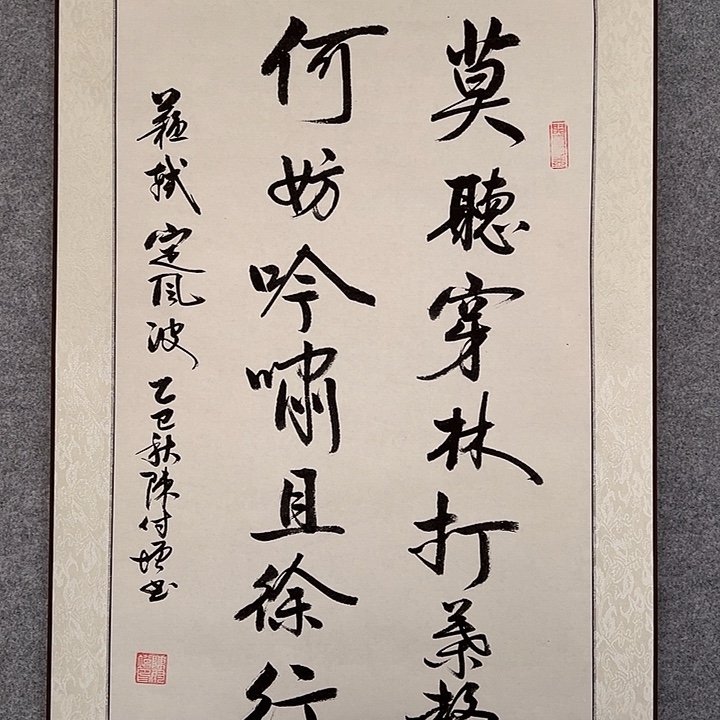 莫聽穿林打葉聲
何妨吟嘯且徐行
蘇軾定風波 乙巳秋陳付增書